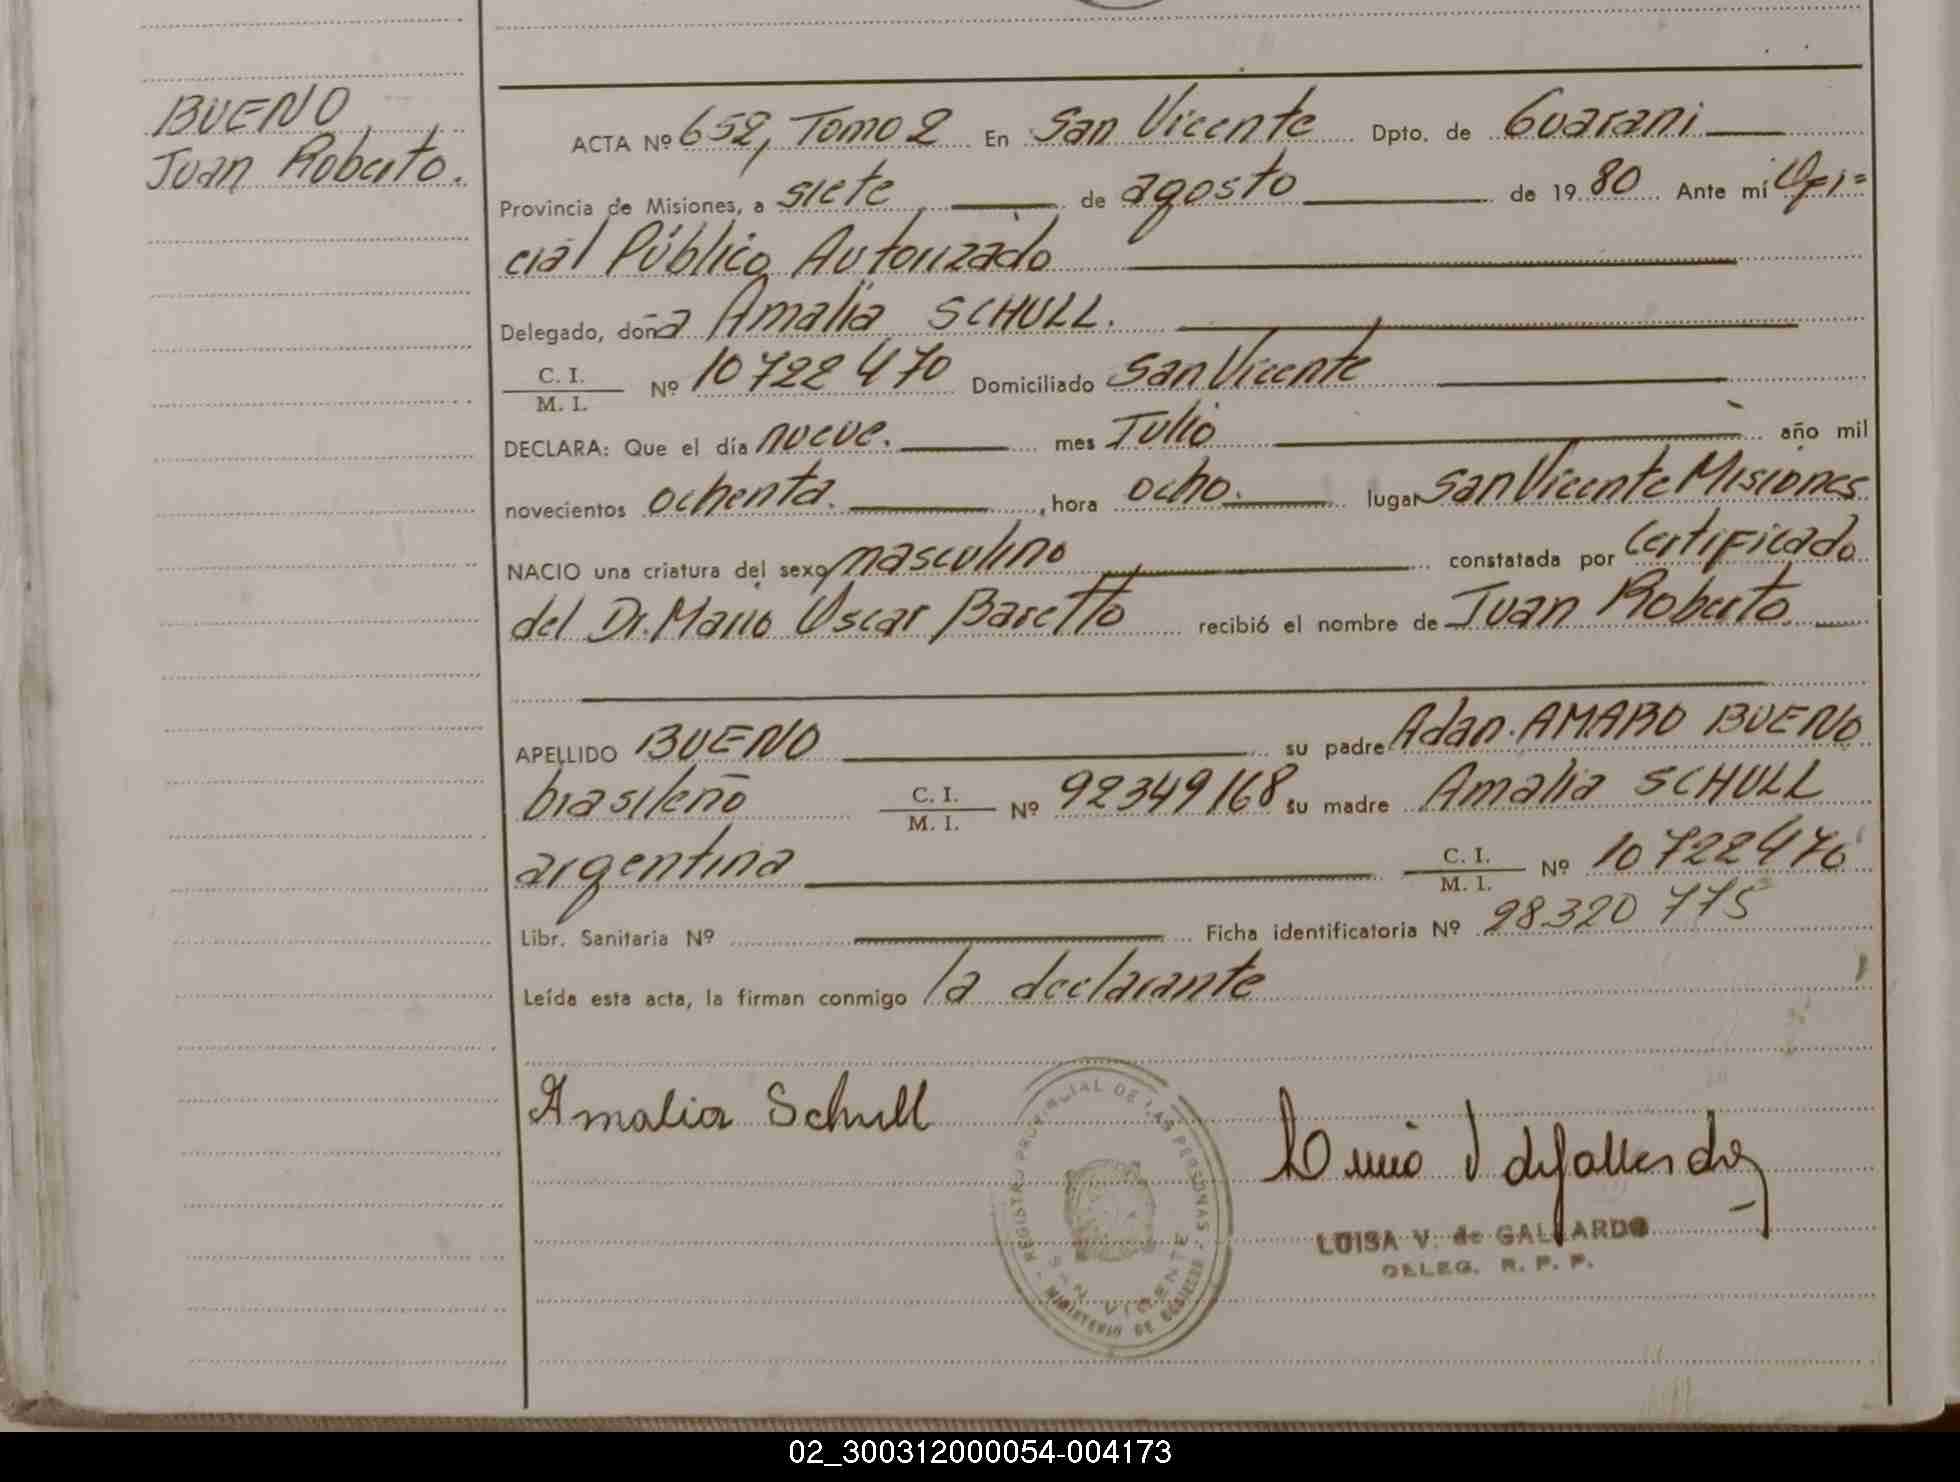 BUENO
Juan Roberto.
ACTA Nº 652, Tomo 2 En San Vicente Dpto. de Guarani
Provincia de Misiones, a siete de agosto de 1980 Ante mí Ofi=
cial Público Autorizado
Delegado, doña Amalia SCHULL.
C. I.
M. I. Nº 10722470 Domiciliado San Vicente
DECLARA: Que el día nueve. mes Julio año mil
novecientos ochenta. , hora ocho. lugar San Vicente Misiones
NACIO una criatura del sexo masculino constatada por certificado
del Dr. Mario Oscar Baretto recibió el nombre de Juan Roberto.
APELLIDO BUENO su padre Adan AMARO BUENO
brasileño C. I.
M. I. Nº 92349168 su madre Amalia SCHULL
argentina C. I.
M. I. Nº 10722470
Libr. Sanitaria Nº Ficha identificatoria Nº 28320775
Leída esta acta, la firman conmigo la declarante
Amalia Schull
REGISTRO PROVINCIAL DE LAS PERSONAS
SAN VICENTE
MINISTERIO DE GOBIERNO
LUISA V. de GALLARDO
DELEG. R. P. P.
02_300312000054-004173